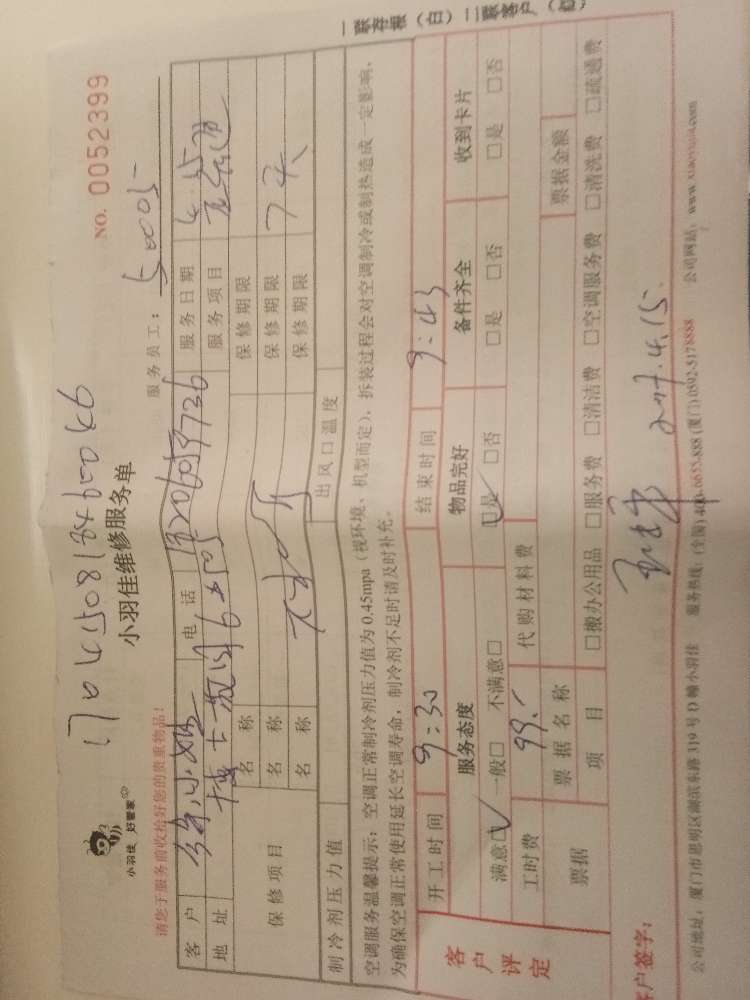 170415081846-046
小羽佳 好管家
小羽佳维修服务单
NO. 0052399
请您于服务前收拾好您的贵重物品！
服务员工： 50005
客户 小姐 电话 服务日期 4.15
地址 服务项目
保修项目 名称 保修期限
名称 保修期限 7天
名称 保修期限
制冷剂压力值 出风口温度
空调服务温馨提示：空调正常制冷剂压力值为 0.45mpa（视环境、机型而定），拆装过程会对空调制冷或制热造成一定影响，
为确保空调正常使用延长空调寿命，制冷剂不足时请及时补充。
客户评定
开工时间 9:30 结束时间 9:43
服务态度 物品完好 备件齐全 收到卡片
满意□ 一般□ 不满意□ □是 □否 □是 □否 □是 □否
工时费 99. 代购材料费
票据 票据名称 票据金额
项目 □搬办公用品 □服务费 □清洁费 □空调服务费 □清洗费 □疏通费
客户签字： 2017.4.15.
公司地址：厦门市思明区湖滨东路 319 号 D 幢小羽佳 服务热线：(全国) 400-0633-888 (厦门) 0592-5178888 公司网站：www.xiaoyujia.com
一联存根（白）二联客户（红）